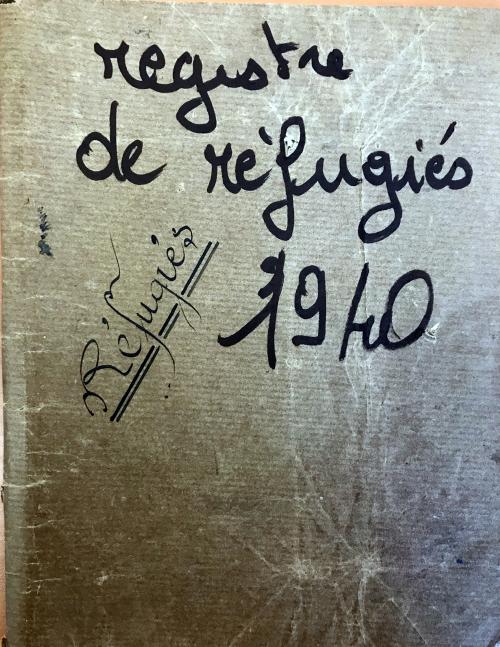 registre
de réfugiés
1940
Réfugiés